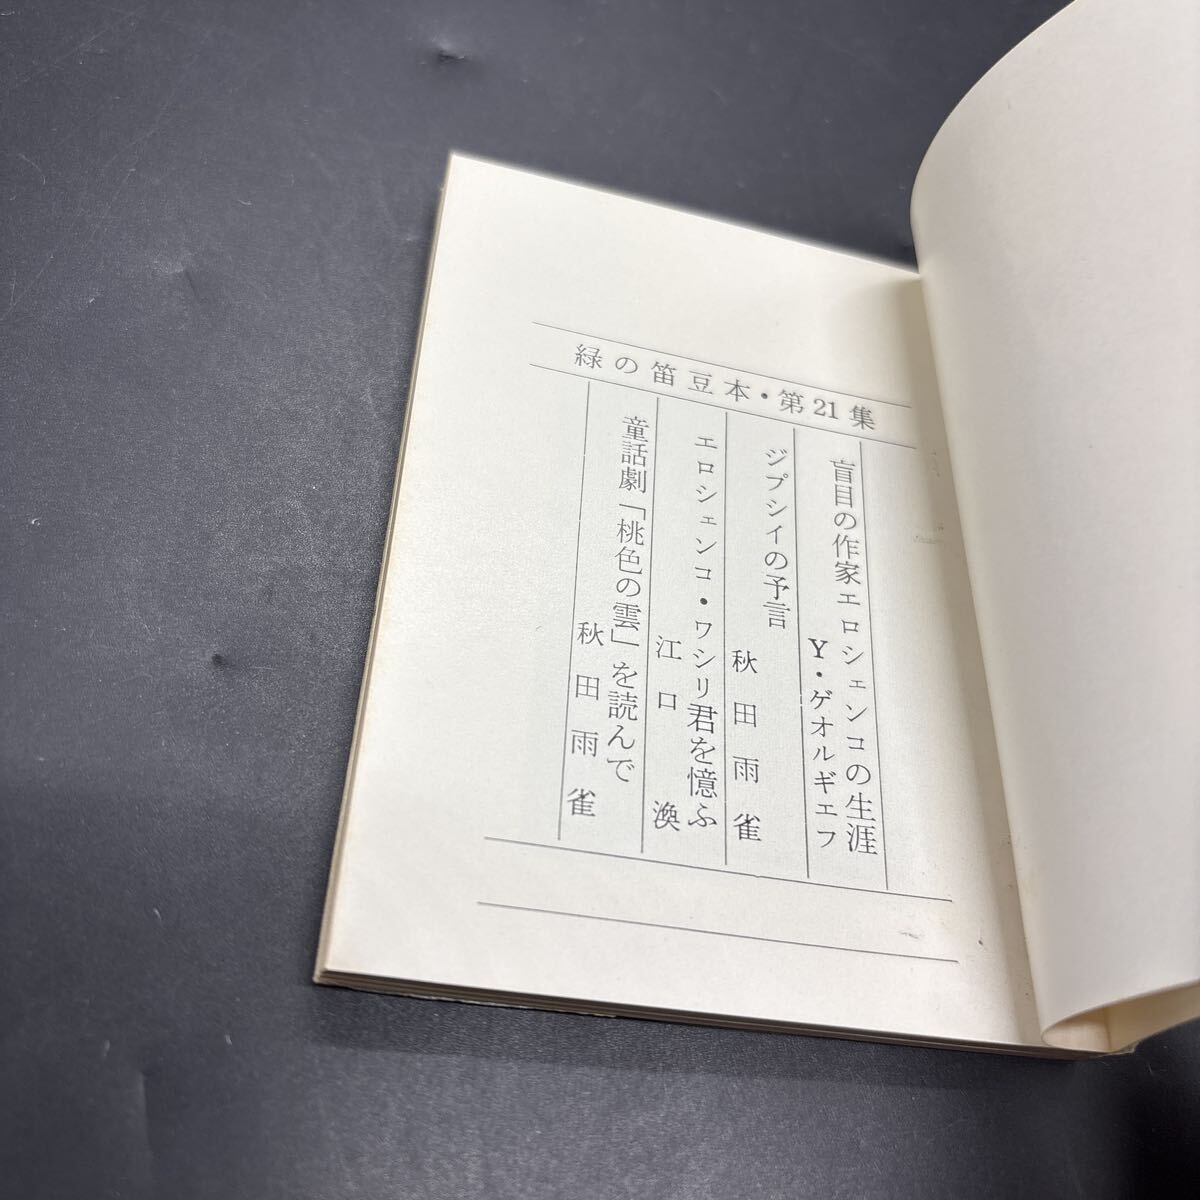 緑の笛豆本・第21集
盲目の作家エロシェンコの生涯
Y・ゲオルギエフ
ジプシイの予言
秋田雨雀
エロシェンコ・ワシリ君を憶ふ
江口渙
童話劇「桃色の雲」を読んで
秋田雨雀